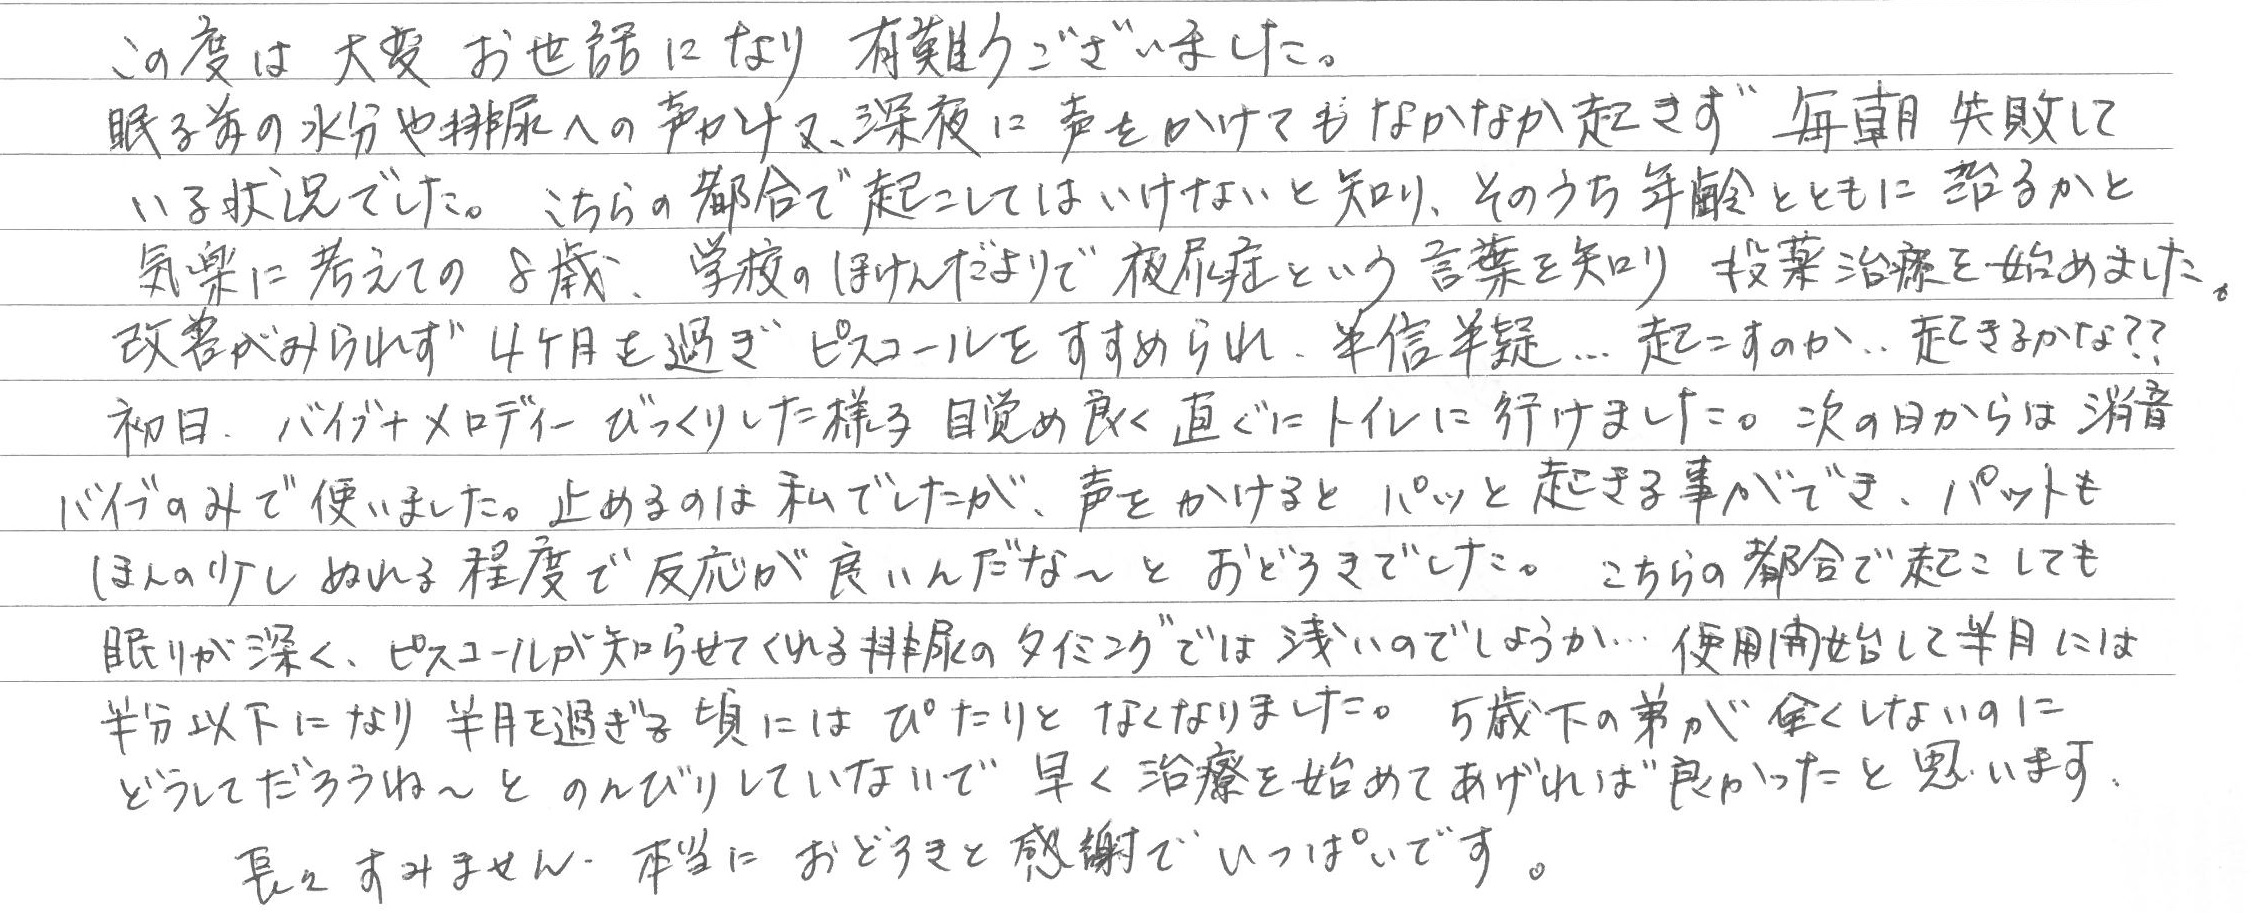 この度は 大変 お世話になり 有難うございました。
眠る前の水分や排尿への声かけ又、深夜に声をかけてもなかなか起きず 毎朝 失敗して
いる状況でした。こちらの都合で起こしてはいけないと知り、そのうち年齢とともに治るかと
気楽に考えての8歳、学校のほけんだよりで夜尿症という言葉を知り 投薬治療を始めました。
改善がみられず4ケ月を過ぎ ピスコールをすすめられ、半信半疑…起こすのか‥起きるかな??
初日、バイブ+メロディー びっくりした様子 目覚め良く 直ぐにトイレに行けました。次の日からは消音
バイブのみで使いました。止めるのは私でしたが、声をかけるとパッと起きる事ができ、パットも
ほんの少しぬれる程度で反応が良いんだな〜とおどろきでした。こちらの都合で起こしても
眠りが深く、ピスコールが知らせてくれる排尿のタイミングでは浅いのでしょうか…使用開始して半月には
半分以下になり 半月を過ぎる頃にはぴたりとなくなりました。5歳下の弟が全くしないのに
どうしてだろうね〜とのんびりしていないで 早く治療を始めてあげれば良かったと思います、
長々すみません. 本当におどろきと感謝でいっぱいです。